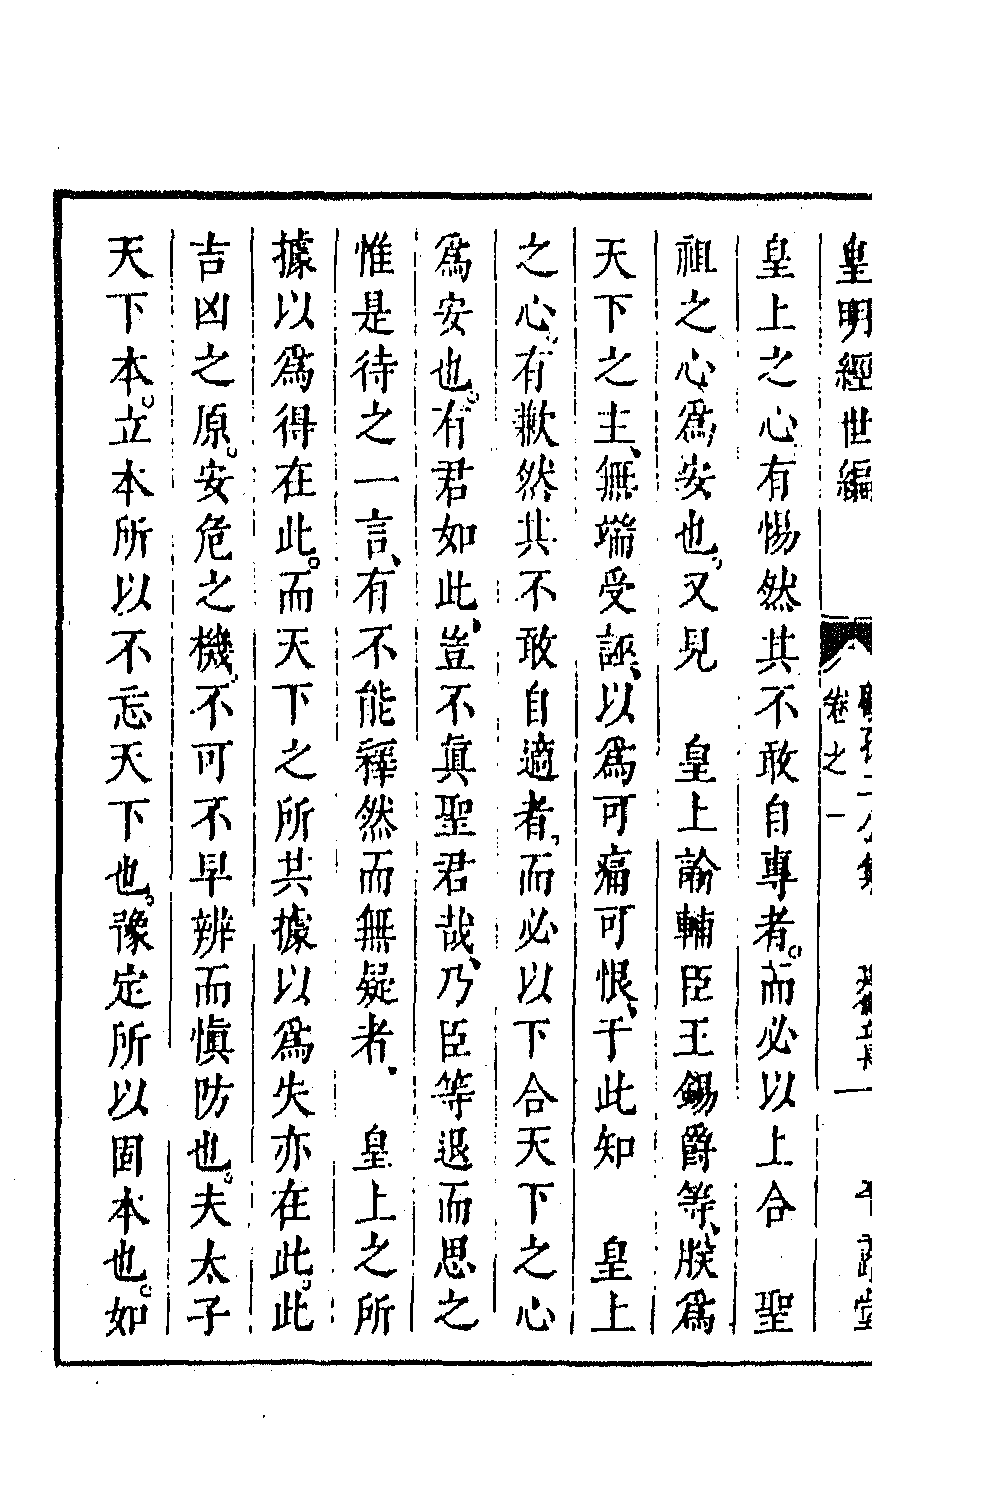 皇明經世編
卷之一
皇上之心有惕然其不敢自專者。而必以上合 聖
祖之心爲安也。又見 皇上諭輔臣王錫爵等、朕爲
天下之主、無端受誣、以爲可痛可恨、于此知 皇上
之心。有歉然其不敢自適者、而必以下合天下之心
爲安也。有君如此、豈不眞聖君哉、乃臣等退而思之
惟是待之一言、有不能釋然而無疑者. 皇上之所
據以爲得在此。而天下之所共據以爲失亦在此。此
吉凶之原。安危之機。不可不早辨而愼防也。夫太子
天下本。立本所以不忘天下也。豫定所以固本也。如